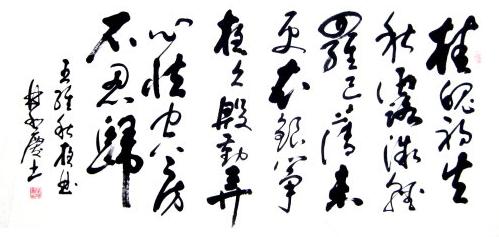 桂魄初生
秋露微輕
羅已薄未
更衣銀箏
夜久殷勤弄
心怯空房
不忍歸
王維秋夜曲